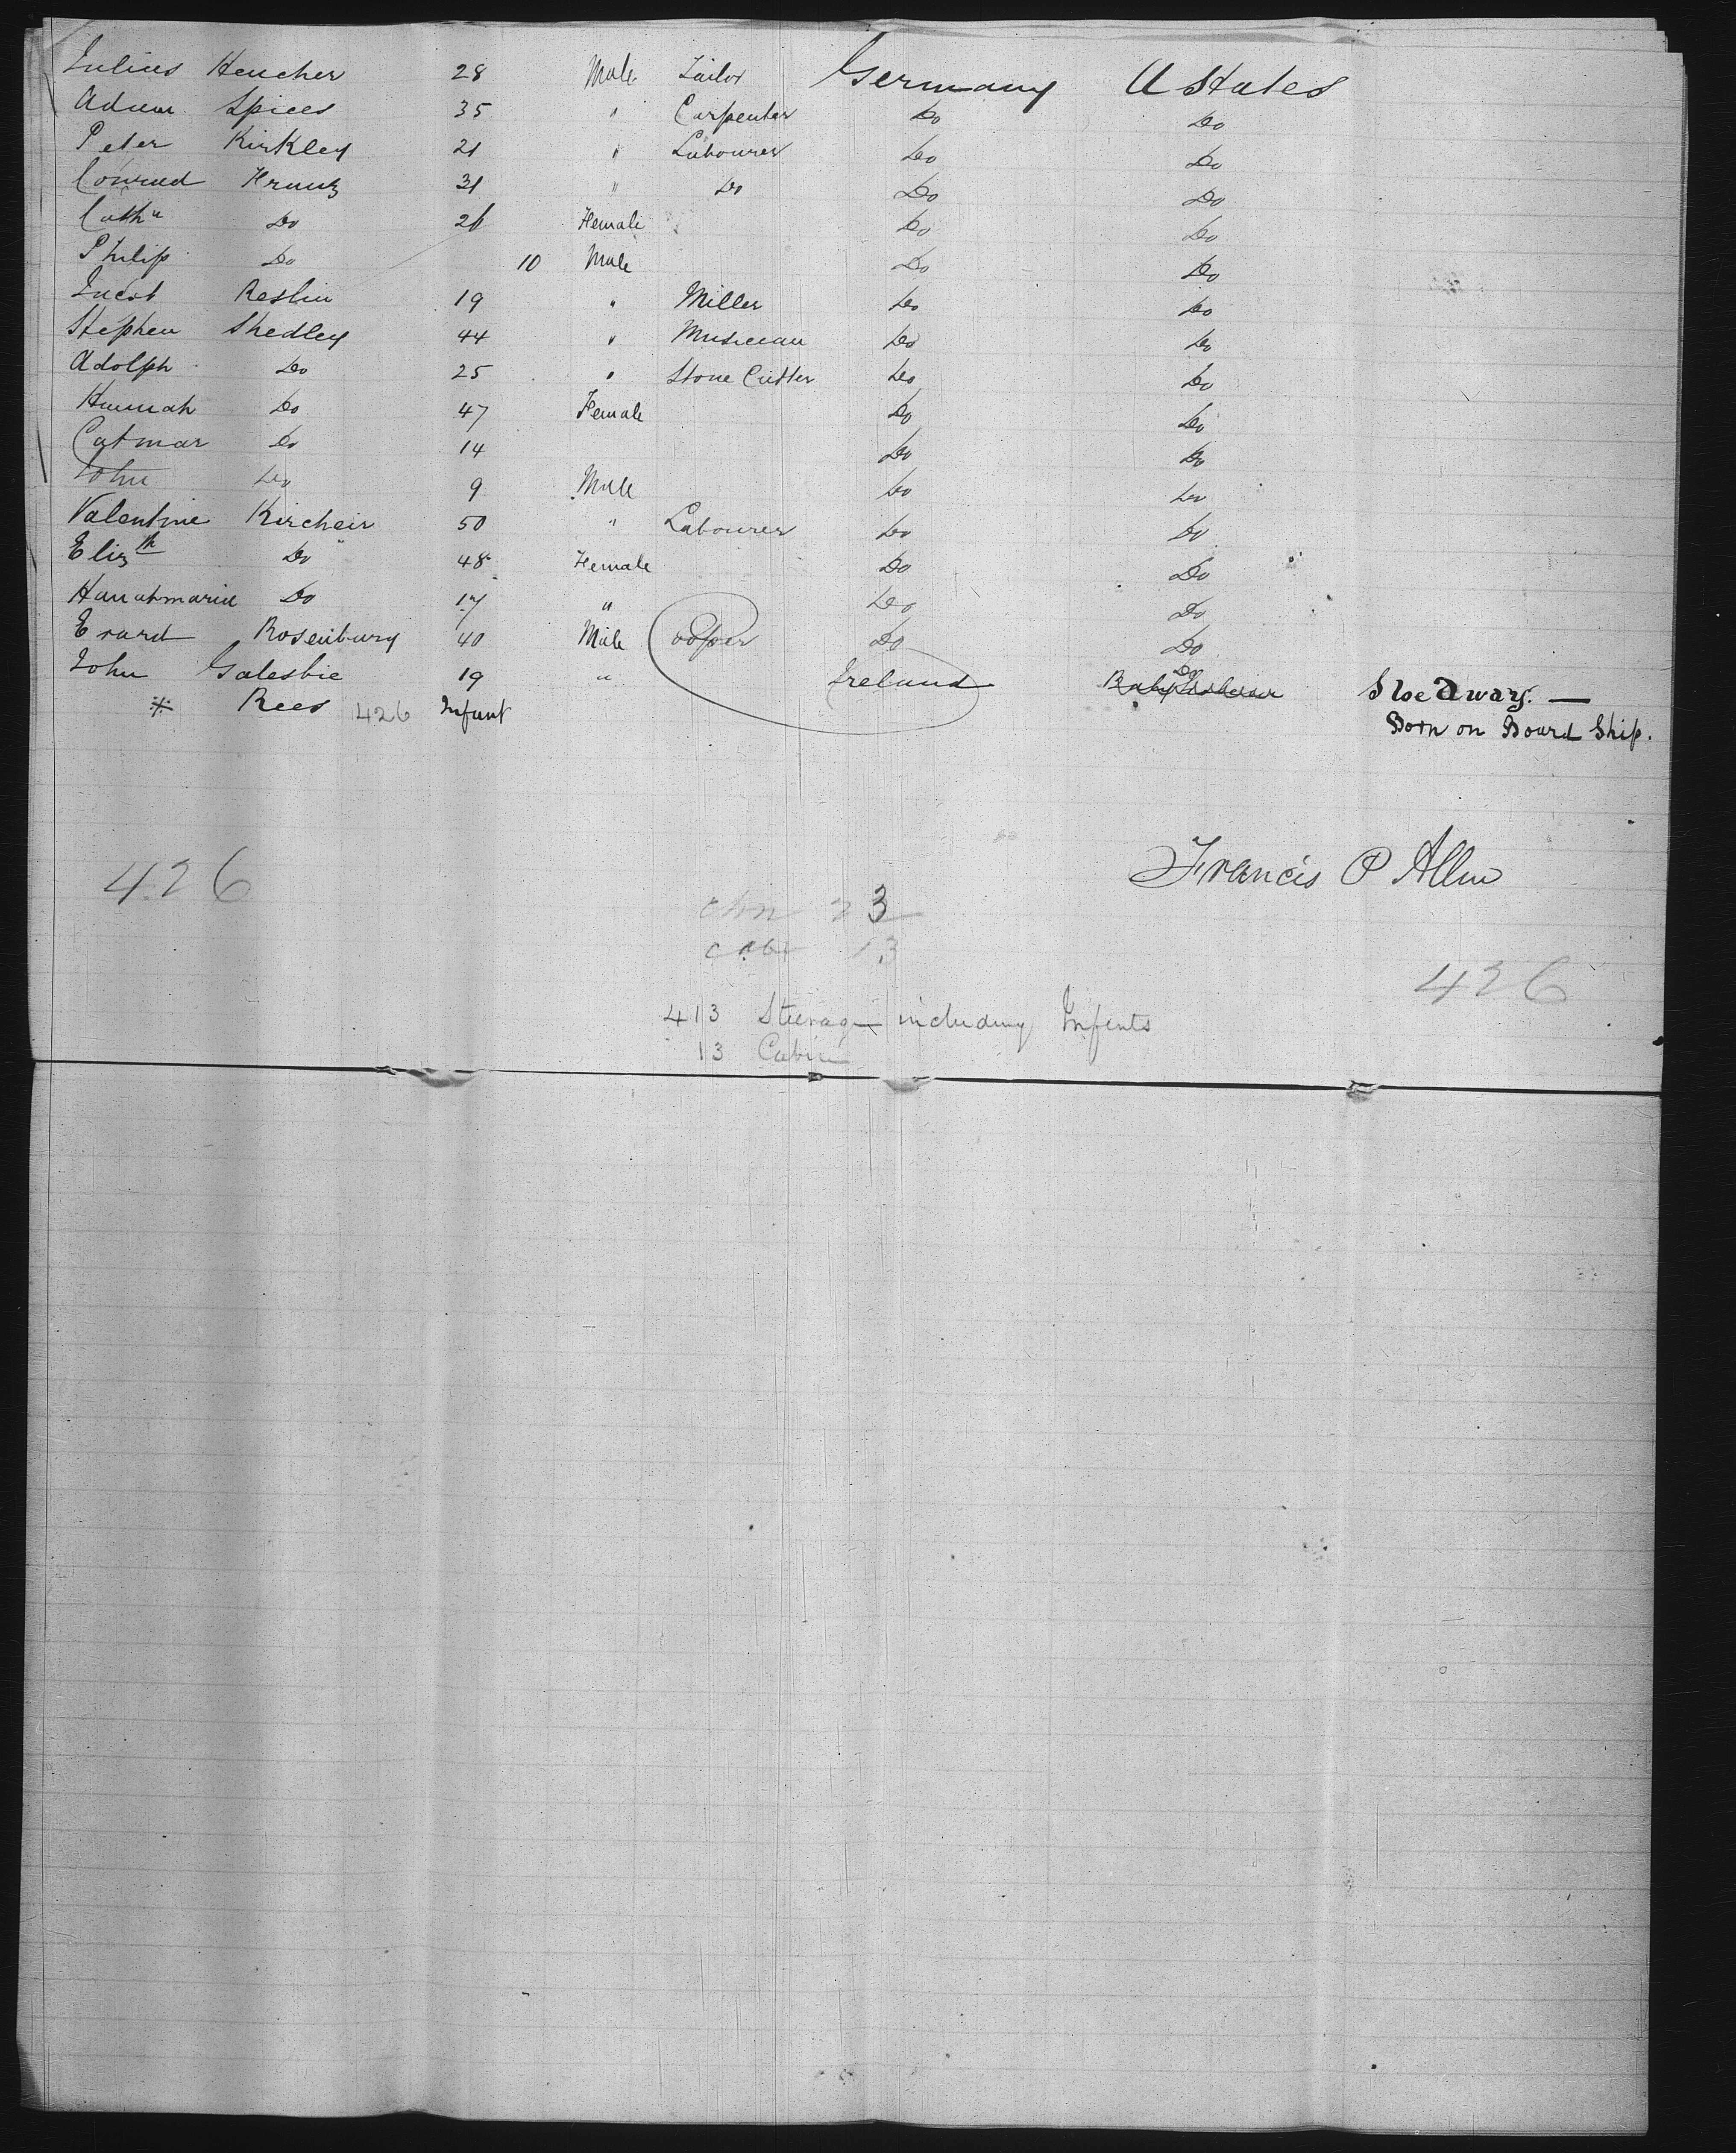 Julius Heucher 28 Male Tailor Germany U States
Adam Spiees 35 " Carpenter Do Do
Peter Kirkley 21 " Labourer Do Do
Conrad Krantz 31 " Do Do Do
Cathe Do 26 Female Do Do
Philip Do 10 Male Do Do
Jacob Reslin 19 " Miller Do Do
Stephen Shedley 44 " Musician Do Do
Adolph Do 25 " Stone Cutter Do Do
Hannah Do 47 Female Do Do
Catmar Do 14 Do Do
John Do 9 Male Do Do
Valentine Kircheir 50 " Labourer Do Do
Elizth Do 48 Female Do Do
Hanahmaria Do 17 " Do Do
Evard Rosenburg 40 Male Cooper Do Do
John Galesbie 19 " Ireland Do Stoe Away. —
Rees 426 Infant Born on Board Ship.
Francis P Allen
426
chn 23
cabi 13
426
413 Steerage including Infents
13 Cabin